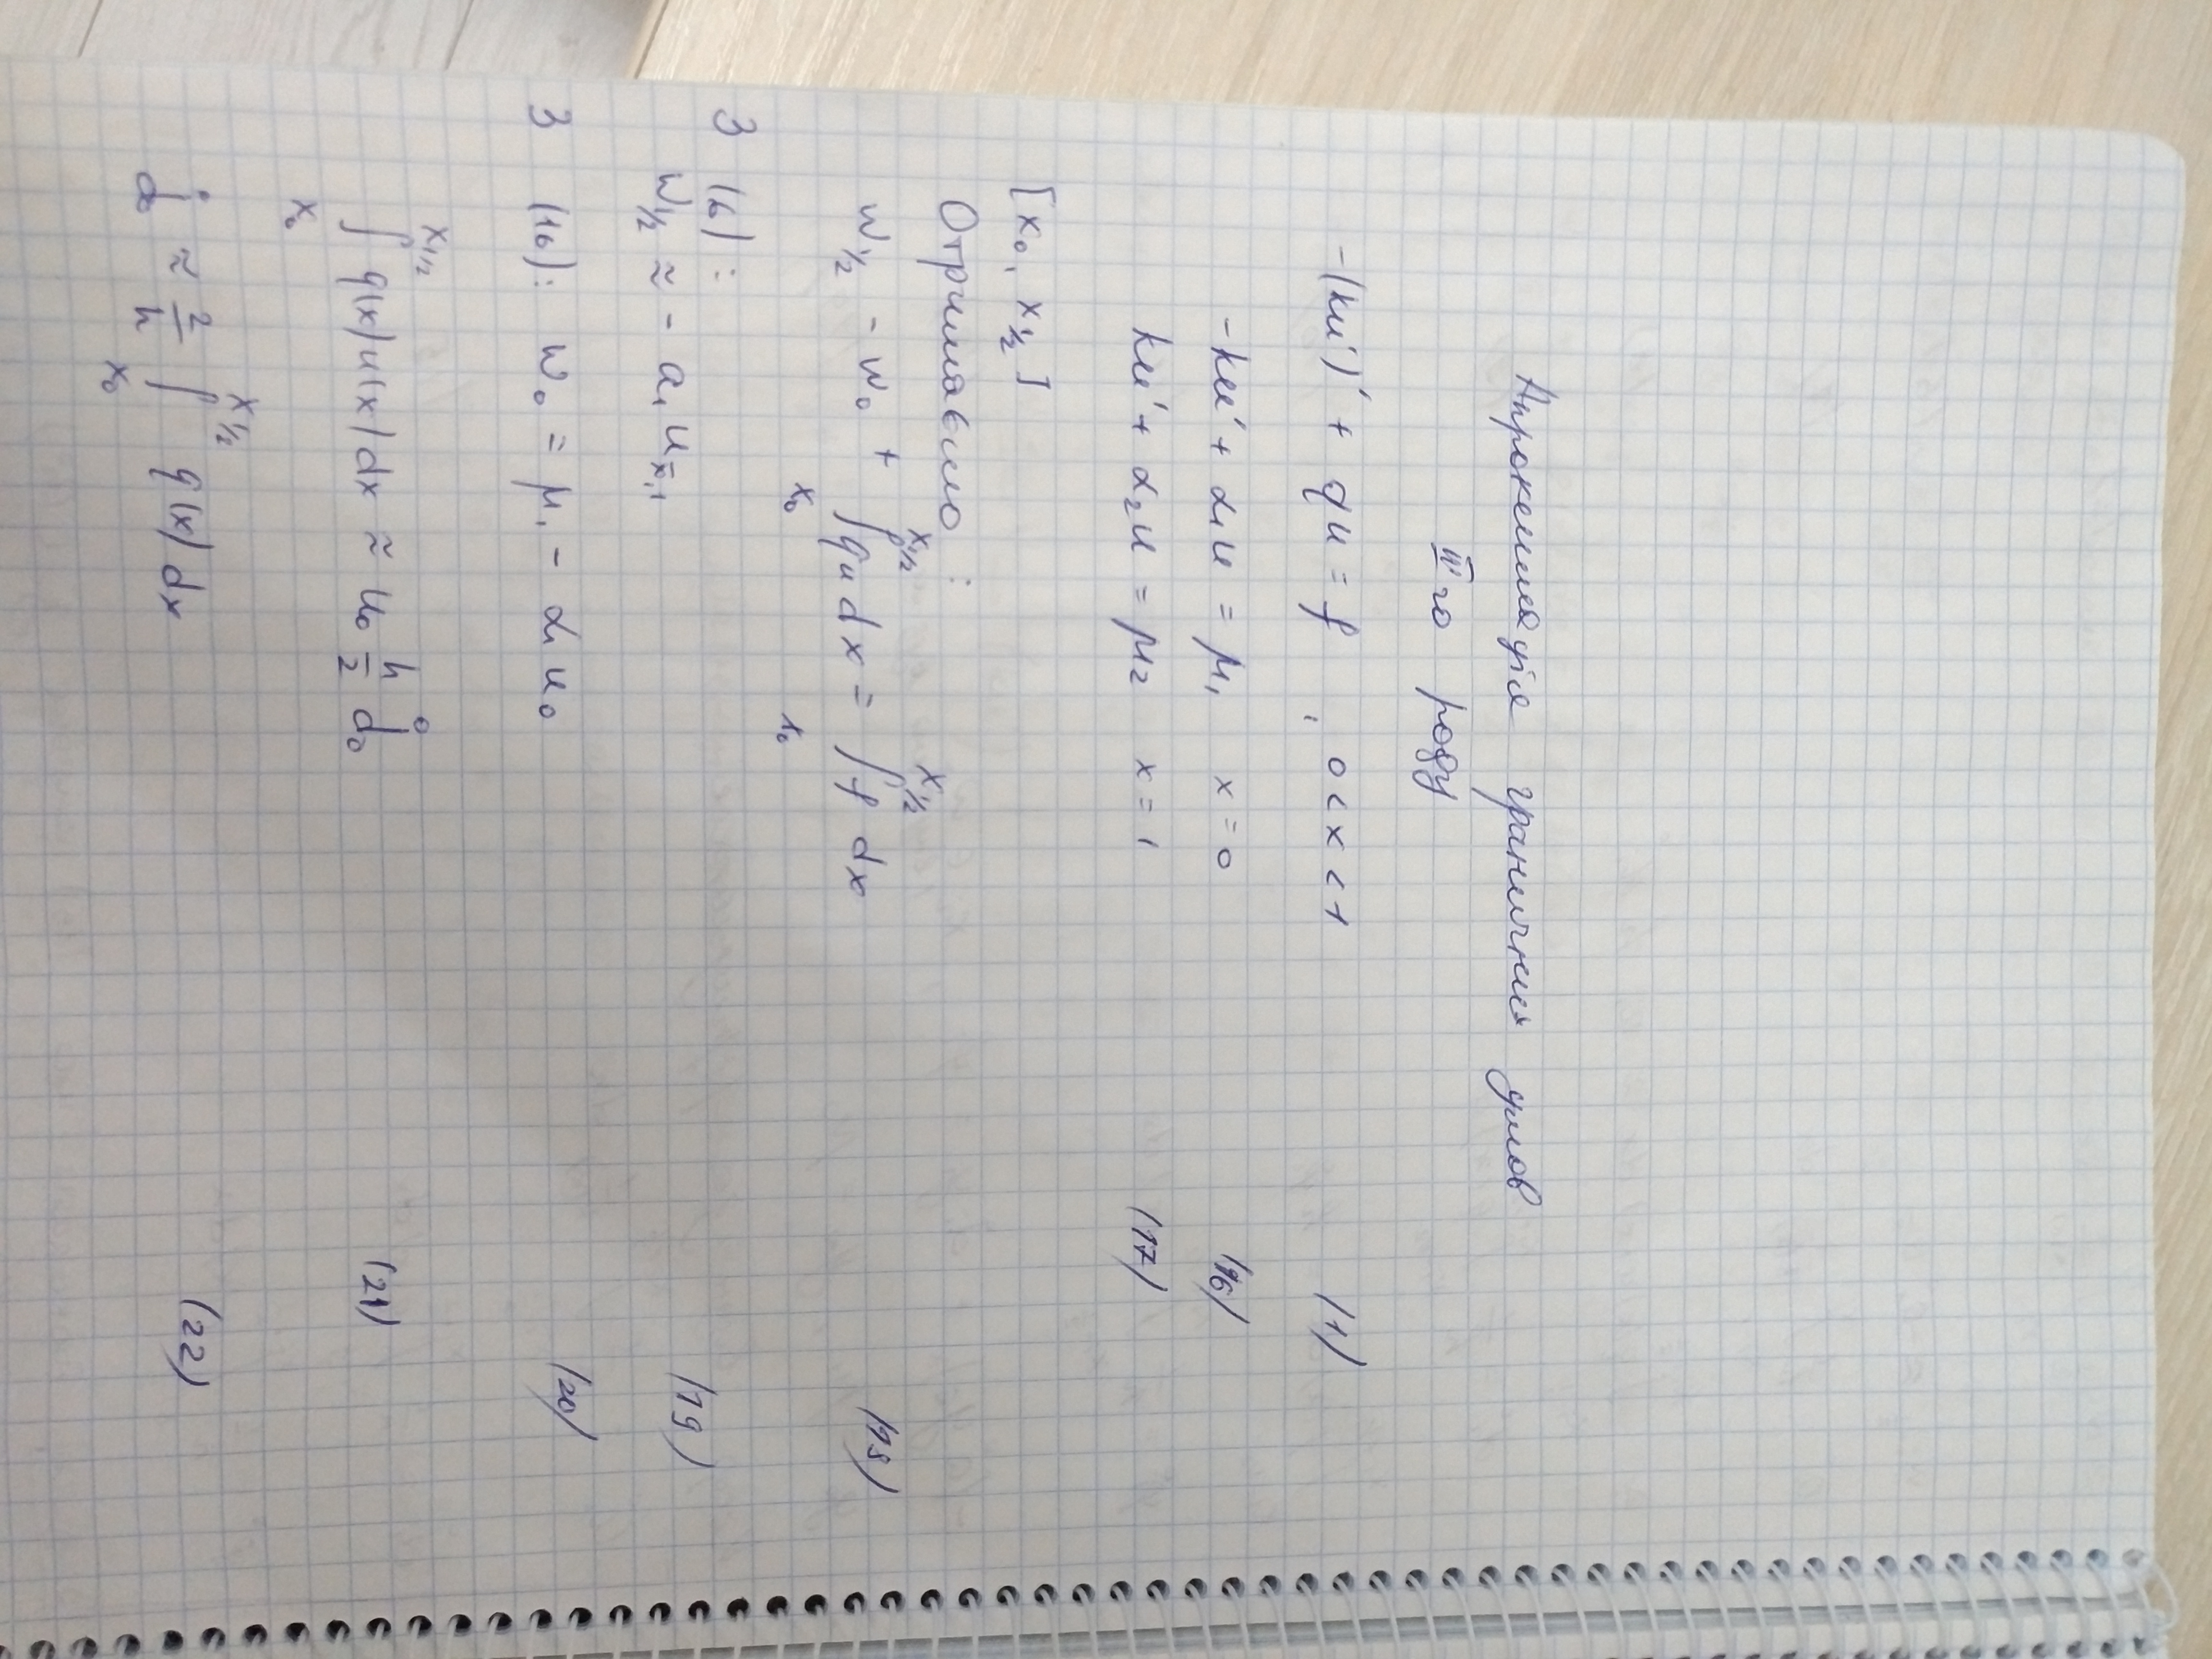 Апроксимація граничних умов
III го роду
-(ku')' + qu = f , 0 < x < 1 (1)
-ku' + α₁u = μ₁ x = 0 (16)
ku' + α₂u = μ₂ x = 1 (17)
[x₀, x½]
Отримавємо :
w½ - w₀ + ∫_{x₀}^{x½} qu dx = ∫_{x₀}^{x½} f dx (18)
З (6) :
w½ ≈ - a₁ u_{x̄,1} (19)
З (16): w₀ = μ₁ - α₁ u₀ (20)
∫_{x₀}^{x½} q(x) u(x) dx ≈ u₀ h/2 d̊₀ (21)
d̊₀ ≈ 2/h ∫_{x₀}^{x½} q(x) dx (22)